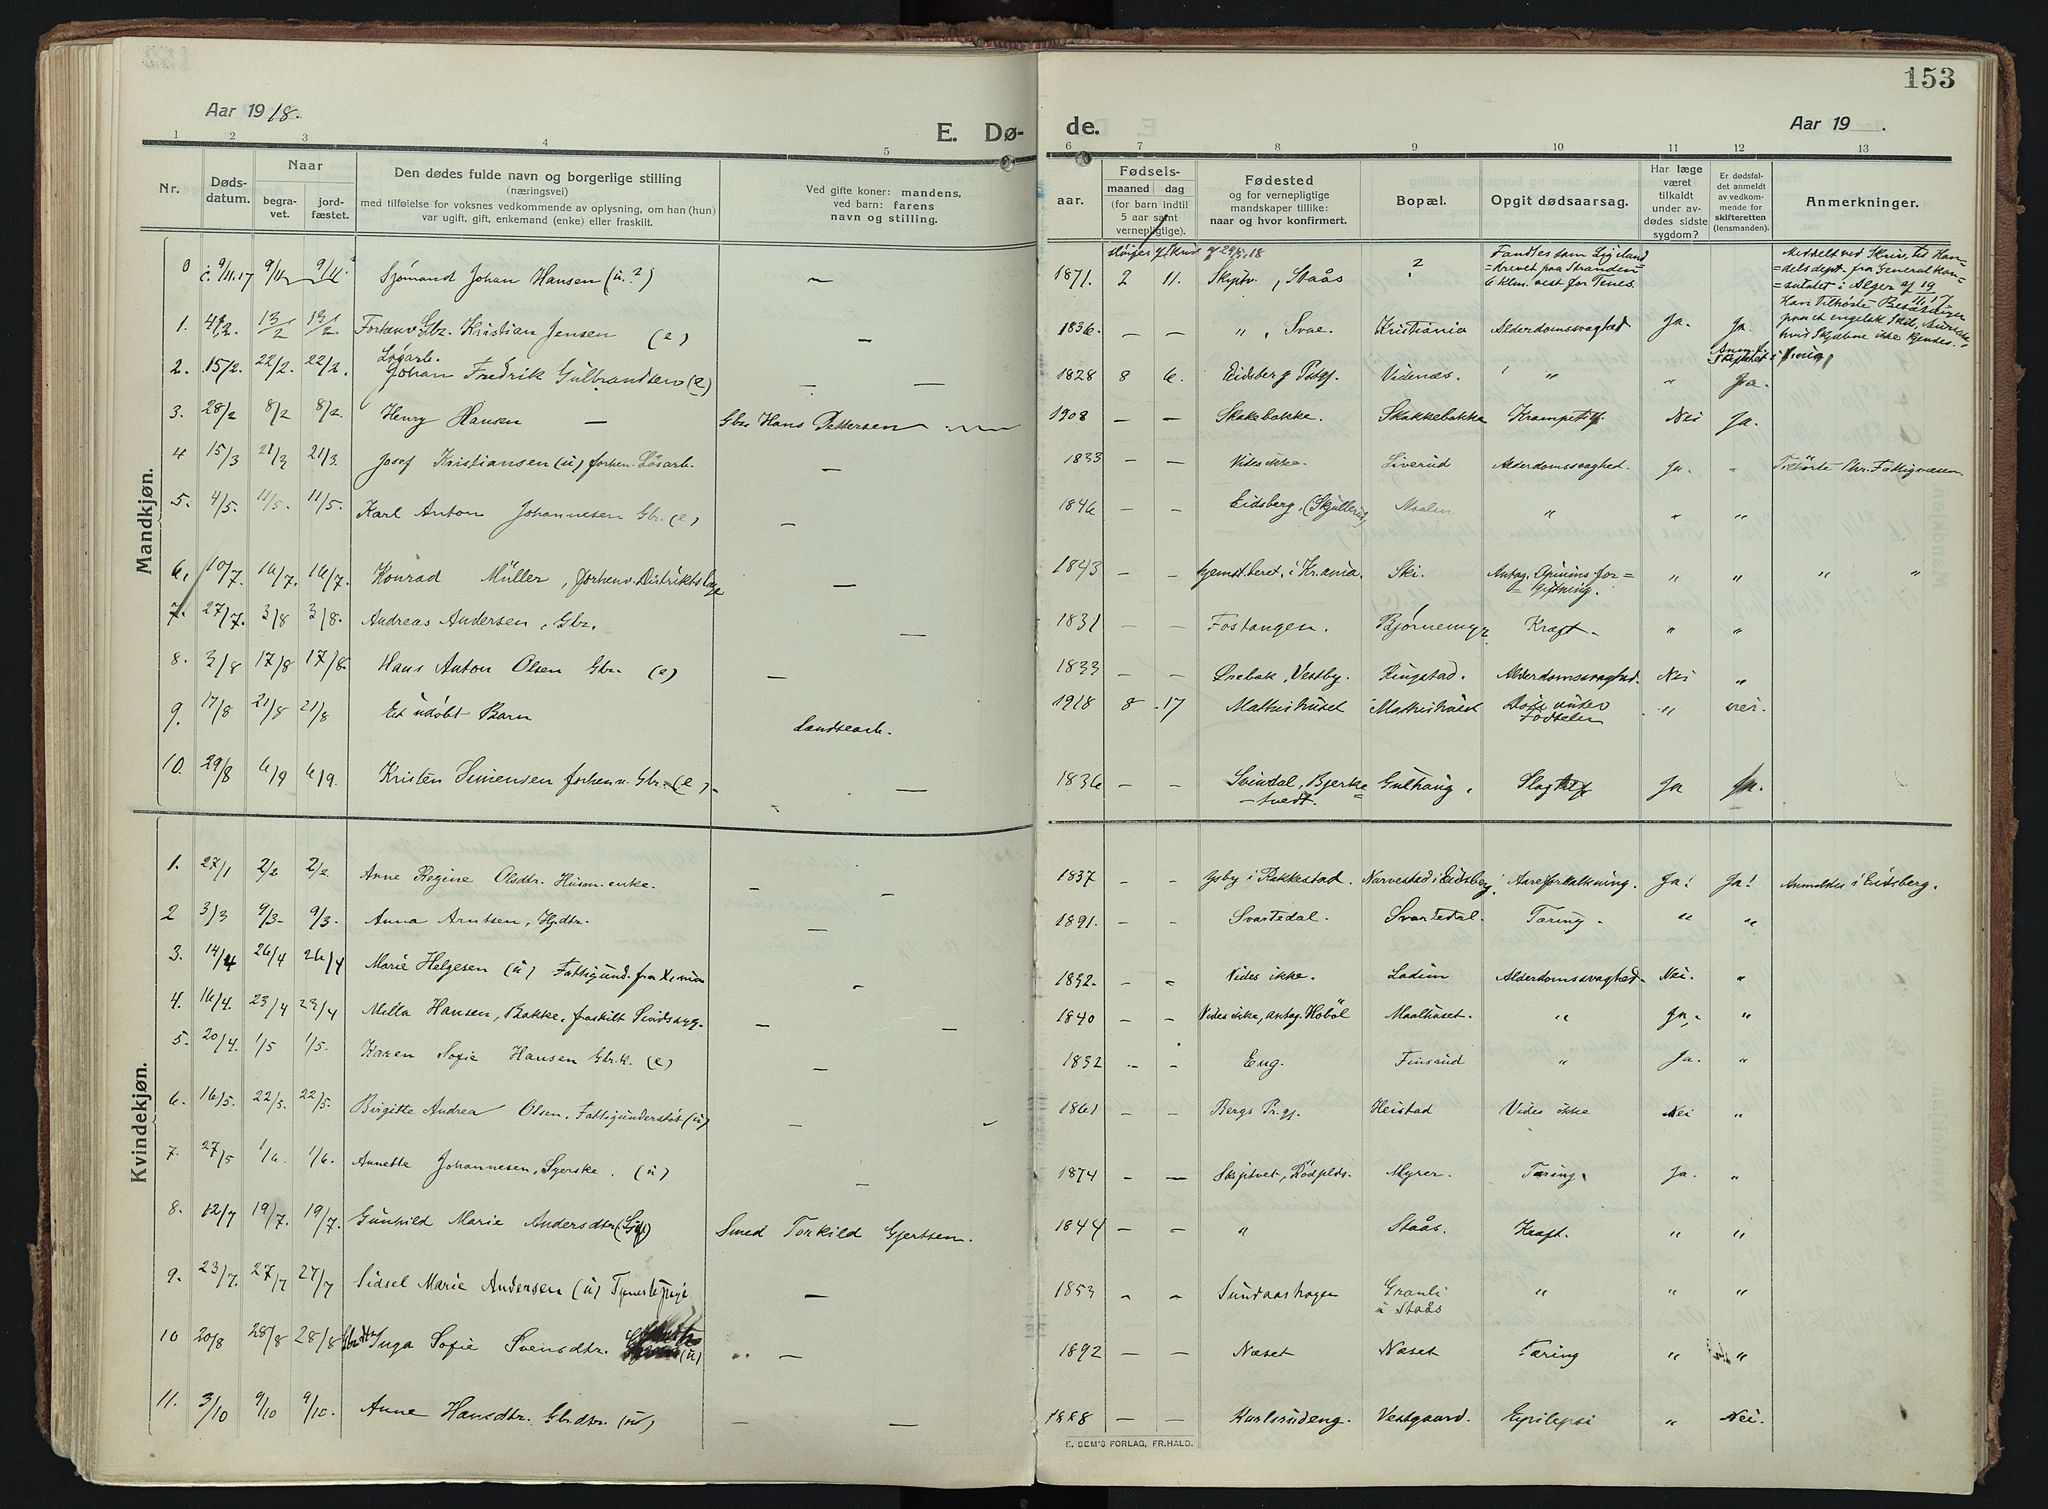 153
Aar 1918.
E. Dø-
de.
Aar 19 .
1 2 3 4 5 6 7 8 9 10 11 12 13
Nr.
Døds-
datum.
Naar
begra-
vet.
jord-
fæstet.
Den dødes fulde navn og borgerlige stilling
(næringsvei)
med tilføielse for voksnes vedkommende av oplysning, om han (hun)
var ugift, gift, enkemand (enke) eller fraskilt.
Ved gifte koner: mandens,
ved barn: farens
navn og stilling.
aar.
Fødsels-
maaned dag
(for barn indtil
5 aar samt
vernepligtige).
Fødested
og for vernepligtige
mandskaper tillike:
naar og hvor konfirmert.
Bopæl.
Opgit dødsaarsag.
Har læge
været
tilkaldt
under av-
dødes sidste
sygdom?
Er dødsfal-
det anmeldt
av vedkom-
mende for
skifteretten
(lensmanden).
Anmerkninger.
Mandkjøn.
0 9/11.17 9/11 9/11 Sjømand Johan Hansen (u.?) — 1871. 2 11. Skiptv., Staås ? Fandtes som Lig iland
drevet paa Stranden
6 klm. vest for Tenes.
1. 13/2 13/2 Forhenv. Gbr. Kristian Jensen (e) — 1836. — — " , Svae. Kristiania Alderdomssvaghed Ja. Ja.
2. 15/2. 22/2. 22/2. Løsarb. Johan Fredrik Gulbrandsen (e) — 1828 8 6. Eidsberg Pstgj. Videnæs. " " Ja.
3. 28/2 8/2 8/2. Henry Hansen — Gbr. Hans Pettersen 1908 — — Skakebakke. Skakkebakke Krampetilf. Nei Ja.
4 15/3 21/3 21/3. Josef Kristiansen (u) forhen. Løsarb. — 1833 — — Vides ikke. Liverud Alderdomssvaghed. Ja. " Tilhørte Chr. Fattigvæsen
5. 4/5. 11/5. 11/5. Karl Anton Johannesen Gbr. (e) — 1846 — — Eidsberg, (Skjullerud) Moalen " " "
6. 10/7. 16/7. 16/7. Konrad Müller, forhenv. Distriktslæge — 1843 — — hjemstberet. i Kr.ania. Ski. Antag. Opiums for=
=giftning. " " " "
7. 27/7. 3/8 3/8. Andreas Andersen, Gbr. — 1831 — — Fostangen. Bjørnemyr Kræft. " "
8. 3/8 17/8 17/8 Hans Anton Olsen Gbr. (e) — 1833 — — Ørebæk, Vestby. Ringstad. Alderdomssvaghed. Nei "
9. 17/8 21/8 21/8 Et udøbt Barn Landsearb. 1918 8 17 Mathishuset Mathishuset Døde under
Fødselen " nei.
10. 29/8 6/9 6/9. Kristen Simensen forhenv. Gbr. (e) — 1836 — — Svindal, Bjerke=
=tvedt. Gulhaug. Slagtilf Ja Ja.
Kvindekjøn.
1. 27/1 2/2 2/2 Anne Regine Olsdtr. Husm. enke. — 1837 — — Ysby i Rakkestad. Narvestad i Eidsberg. Aareforkalkning. Ja! Ja! Anmeldes i Eidsberg.
2 3/3 9/3 9/3. Anna Arntsen, Hj.dtr. — 1891. — — Svartedal. Svartedal. Tæring. " "
3. 14/4 26/4 26/4 Marie Helgesen (u) Fattigund. fra Kr.ania — 1832. — — Vides ikke. Ladim Alderdomssvaghed. Nei. "
4. 16/4. 23/4 23/4 Milla Hansen, Bakke, fraskilt Sindssyg. — 1840 — — Vides ikke, antag. Høbøl Maalhuset. " Ja. "
5. 20/4. 1/5 1/5. Karen Sofie Hansen Gbr.k. (e) — 1832 — — Eng. Finsrud " Ja. "
6. 16/5. 22/5. 22/5. Birgitte Andrea Olsen. Fattigunderstøt (u) — 1861 — — Bergs Pr.gj. Heistad Vides ikke Nei "
7. 27/5 1/6. 1/6. Annette Johannesen, Syerske. (u) — 1874 — — Skiptvet, Rödsplds. Myrer. Tæring. Ja. "
8. 12/7 19/7. 19/7. Gunhild Marie Andersdtr. (Gift) Smed Torkild Gjertsen. 1844 — — " Staås. Kræft. " "
9. 23/7. 27/7 27/7 Sidsel Marie Andersen (u) Tjenestepige — 1853 — — Sundaashagen Granli
u Staås " " "
10 20/8 28/8 28/8 Gbrdtr Inga Sofie Svensdtr. (u) — 1892 — — Næset Næset Tæring " "
11. 3/10 9/10 9/10. Anne Hansdtr. Gbrdtr. (u) — 1868 — — Karlsrudeng. Vestgaard. Epilepsi " Nei.
E. SEM'S FORLAG, FR.HALD.